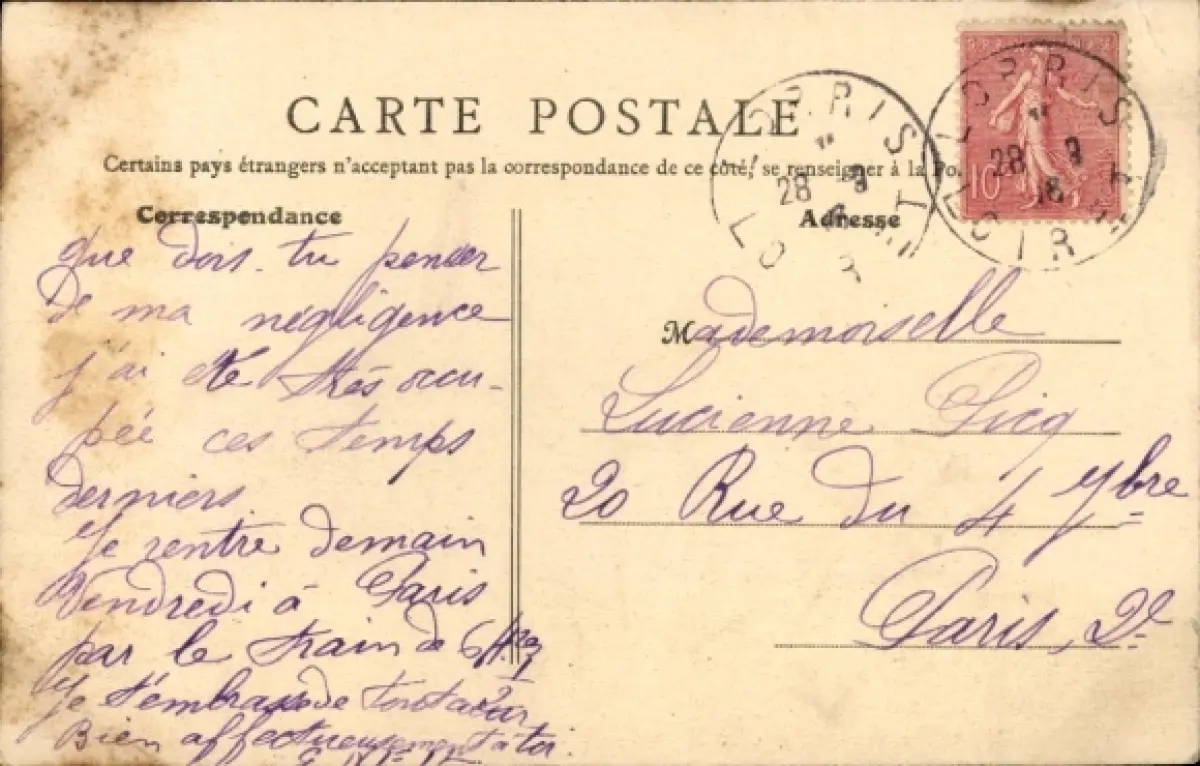 CARTE POSTALE
Certains pays étrangers n'acceptant pas la correspondance de ce côté, se renseigner à la Po
Correspondance
Adresse
LORRIS
28
LOIRET
LORRIS
28
LOIRET
10
que dois-tu penser
De ma négligence
j'ai été très occu-
pée ces temps
derniers
Je rentre demain
Vendredi à Paris
par le train de 6h
Je t'embrasse de tout cœur
Bien affectueusement à toi.
Mademoiselle
Lucienne Picq
20 Rue du 4 7bre
Paris, 2e